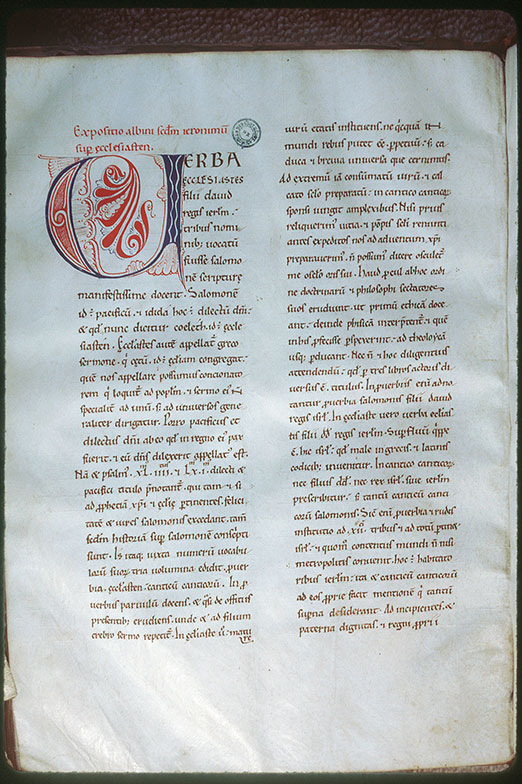 Expositio albini scdm ieronimu
sup eclesiasten.
VERBA
ECCLESIASTES
filii dauid
regis ierlm.
tribus nomi
nib; uocatu
fuisse salomo
ne scripture
manifestissime docent. Salomone
id: pacificu. & idida hoc: dilectu dni.
& qd nunc dicitur coeleth. id: ecle
siasten. Eclesiastes aute appellat greco
sermone. q cetu. id: ecliam congregat.
que nos appellare possumus concionato
rem q loquit ad poplm. & sermo ei n
specialit ad unu. s; ad uniuersos gene
raliter dirigatur. Porro pacificus et
dilectus dni ab eo qd in regno ei pax
fuerit. & eu dns dilexerit appellat est.
Na & psalm. XL.IIII. & LX.I. dilecti &
pacifici titulo pnotant. qui tam & si
ad pphetia xpi & eclie ptinentes. felici
tate & uires salomonis excedant. tam
scdm historia sup salomone conscpti
sunt. Is itaq; iuxta numeru uocabu
loru suor. tria uolumina edidit. puer
bia. eclesiasten. canticu canticoru. In p
uerbiis paruulu docens. & qsi de officiis
presentib; erudiens. unde & ad filium
crebro sermo repetit. In ecliaste u matu
re
uiru etatis instituens. ne qcqua in
mundi rebus putet ee ppetuu. s;
caduca & breuia uniuersa que cernimus.
Ad extremu ia consumatu uiru. & cal
cato sclo preparatu. in cantico canticor
sponsi iungit amplexibus. Nisi prius
reliquerim uitia. & pompis scli renunti
antes expeditos nos ad aduentum xpi
preparauerim. n possim dicere osculet
me osclo oris sui. Haud pcul ab hoc ordi
ne doctrinaru & philosophi sectatores
suos erudiunt. ut primu ethica doce
ant. deinde phisica interptent. & que
in his pfecisse pspexerint. ad theologica
usq; pducant. Nec n & hoc diligentius
attendendu. qd p tres libros actoris di
uersus e titulus. In puerbiis eni adno
tantur puerbia salomonis filii dauid
regis isrl. In ecliaste uero uerba eclias
tis filii dd regis ierlm. Supfluu qppe
e hic isrl. qd male in grecis & latinis
codicib; inuenitur. In cantico canticor.
nec filius dd. nec rex isrl. siue ierlm
prescribitur. s; tantu canticu canti
coru salomonis. Sic eni puerbia & rudis
institutio ad .xii. tribus & ad totu ptinet
isrl. & quom contemtus mundi n nisi
metropolitis conuenit. hoc: habitato
ribus ierlm. ita & canticu canticoru
ad eos pprie facit mentione q tantu
supna desiderant. Ad incipientes &
paterna dignitas. & regni pprii